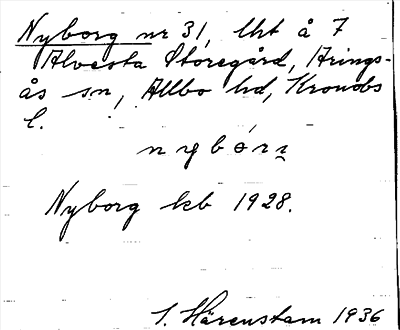 Nyborg nr 31, lht å 7
Alvesta Storegård, Arings-
ås sn, Allbo hd, Kronobs
l.
Nyborg kb 1928.
S. Härenstam 1936